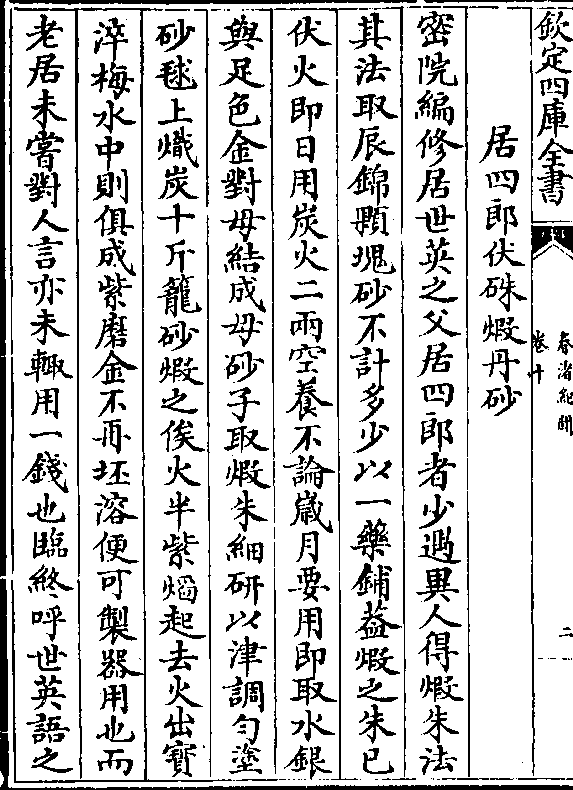 欽定四庫全書
春渚紀聞
卷十
二
居四郎伏硃煆丹砂
密院編修居世英之父居四郎者少遇異人得煆朱法
其法取辰錦顆塊砂不計多少以一藥鋪葢煆之朱已
伏火即日用炭火二兩空養不論歲月要用即取水銀
與足色金對母結成母砂子取煆朱細研以津調勻塗
砂毬上熾炭十斤籠砂煆之俟火半紫焰起去火出寳
淬梅水中則俱成紫磨金不再坯溶便可製器用也而
老居未嘗對人言亦未輙用一錢也臨終呼世英語之